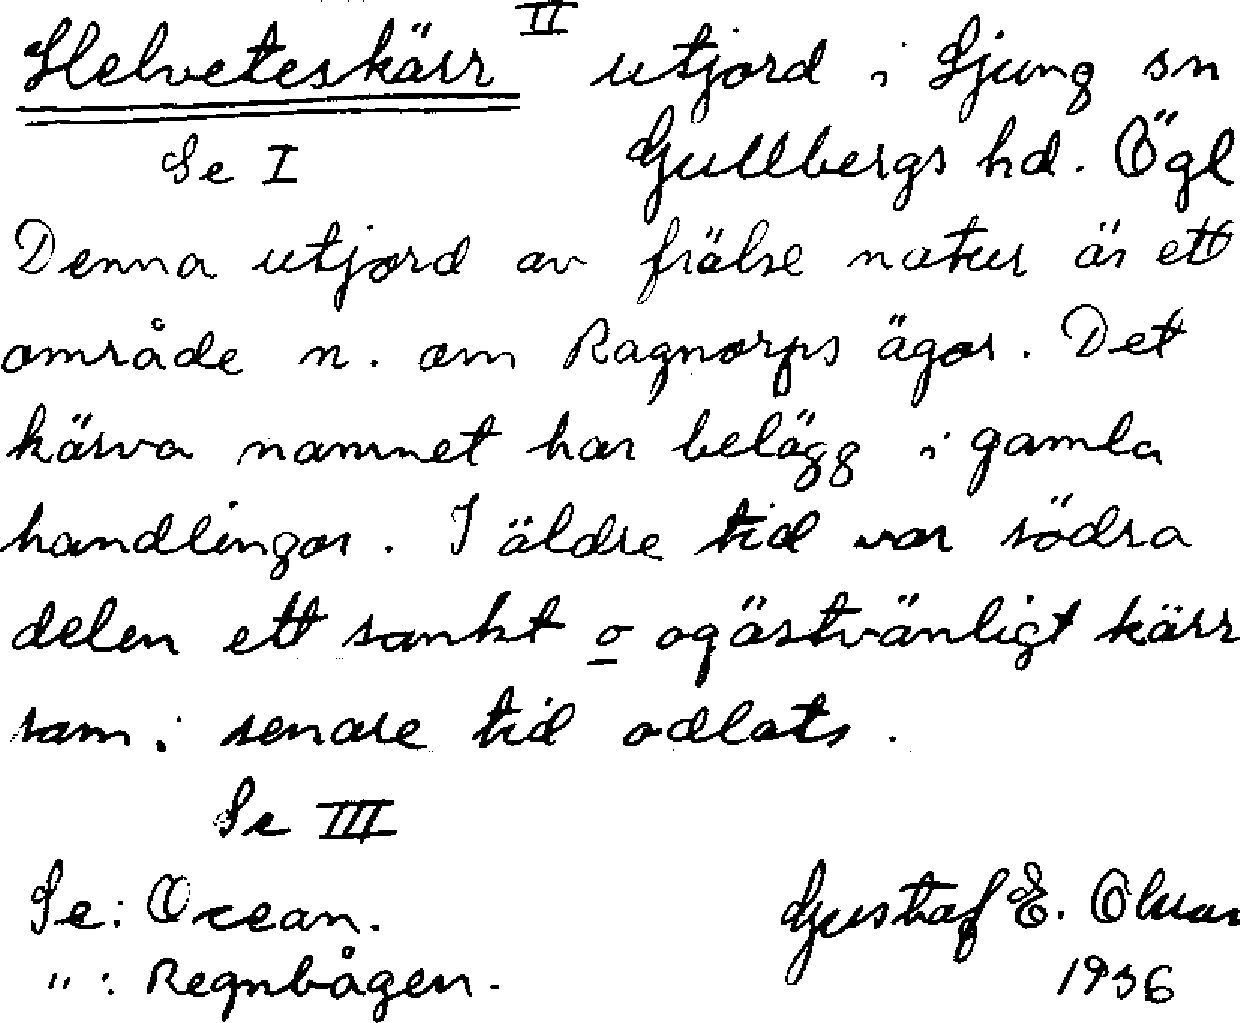 Helveteskärr II utjord i Ljung sn
Se I Gullbergs hd. Ögl
Denna utjord av frälse natur är ett
område n. om Ragnorps ägor. Det
kärva namnet har belägg i gamla
handlingar. I äldre tid var södra
delen ett sankt o ogästvänligt kärr
som i senare tid odlats.
Se III
Se: Ocean. Gustaf E.
" : Regnbågen. 1936